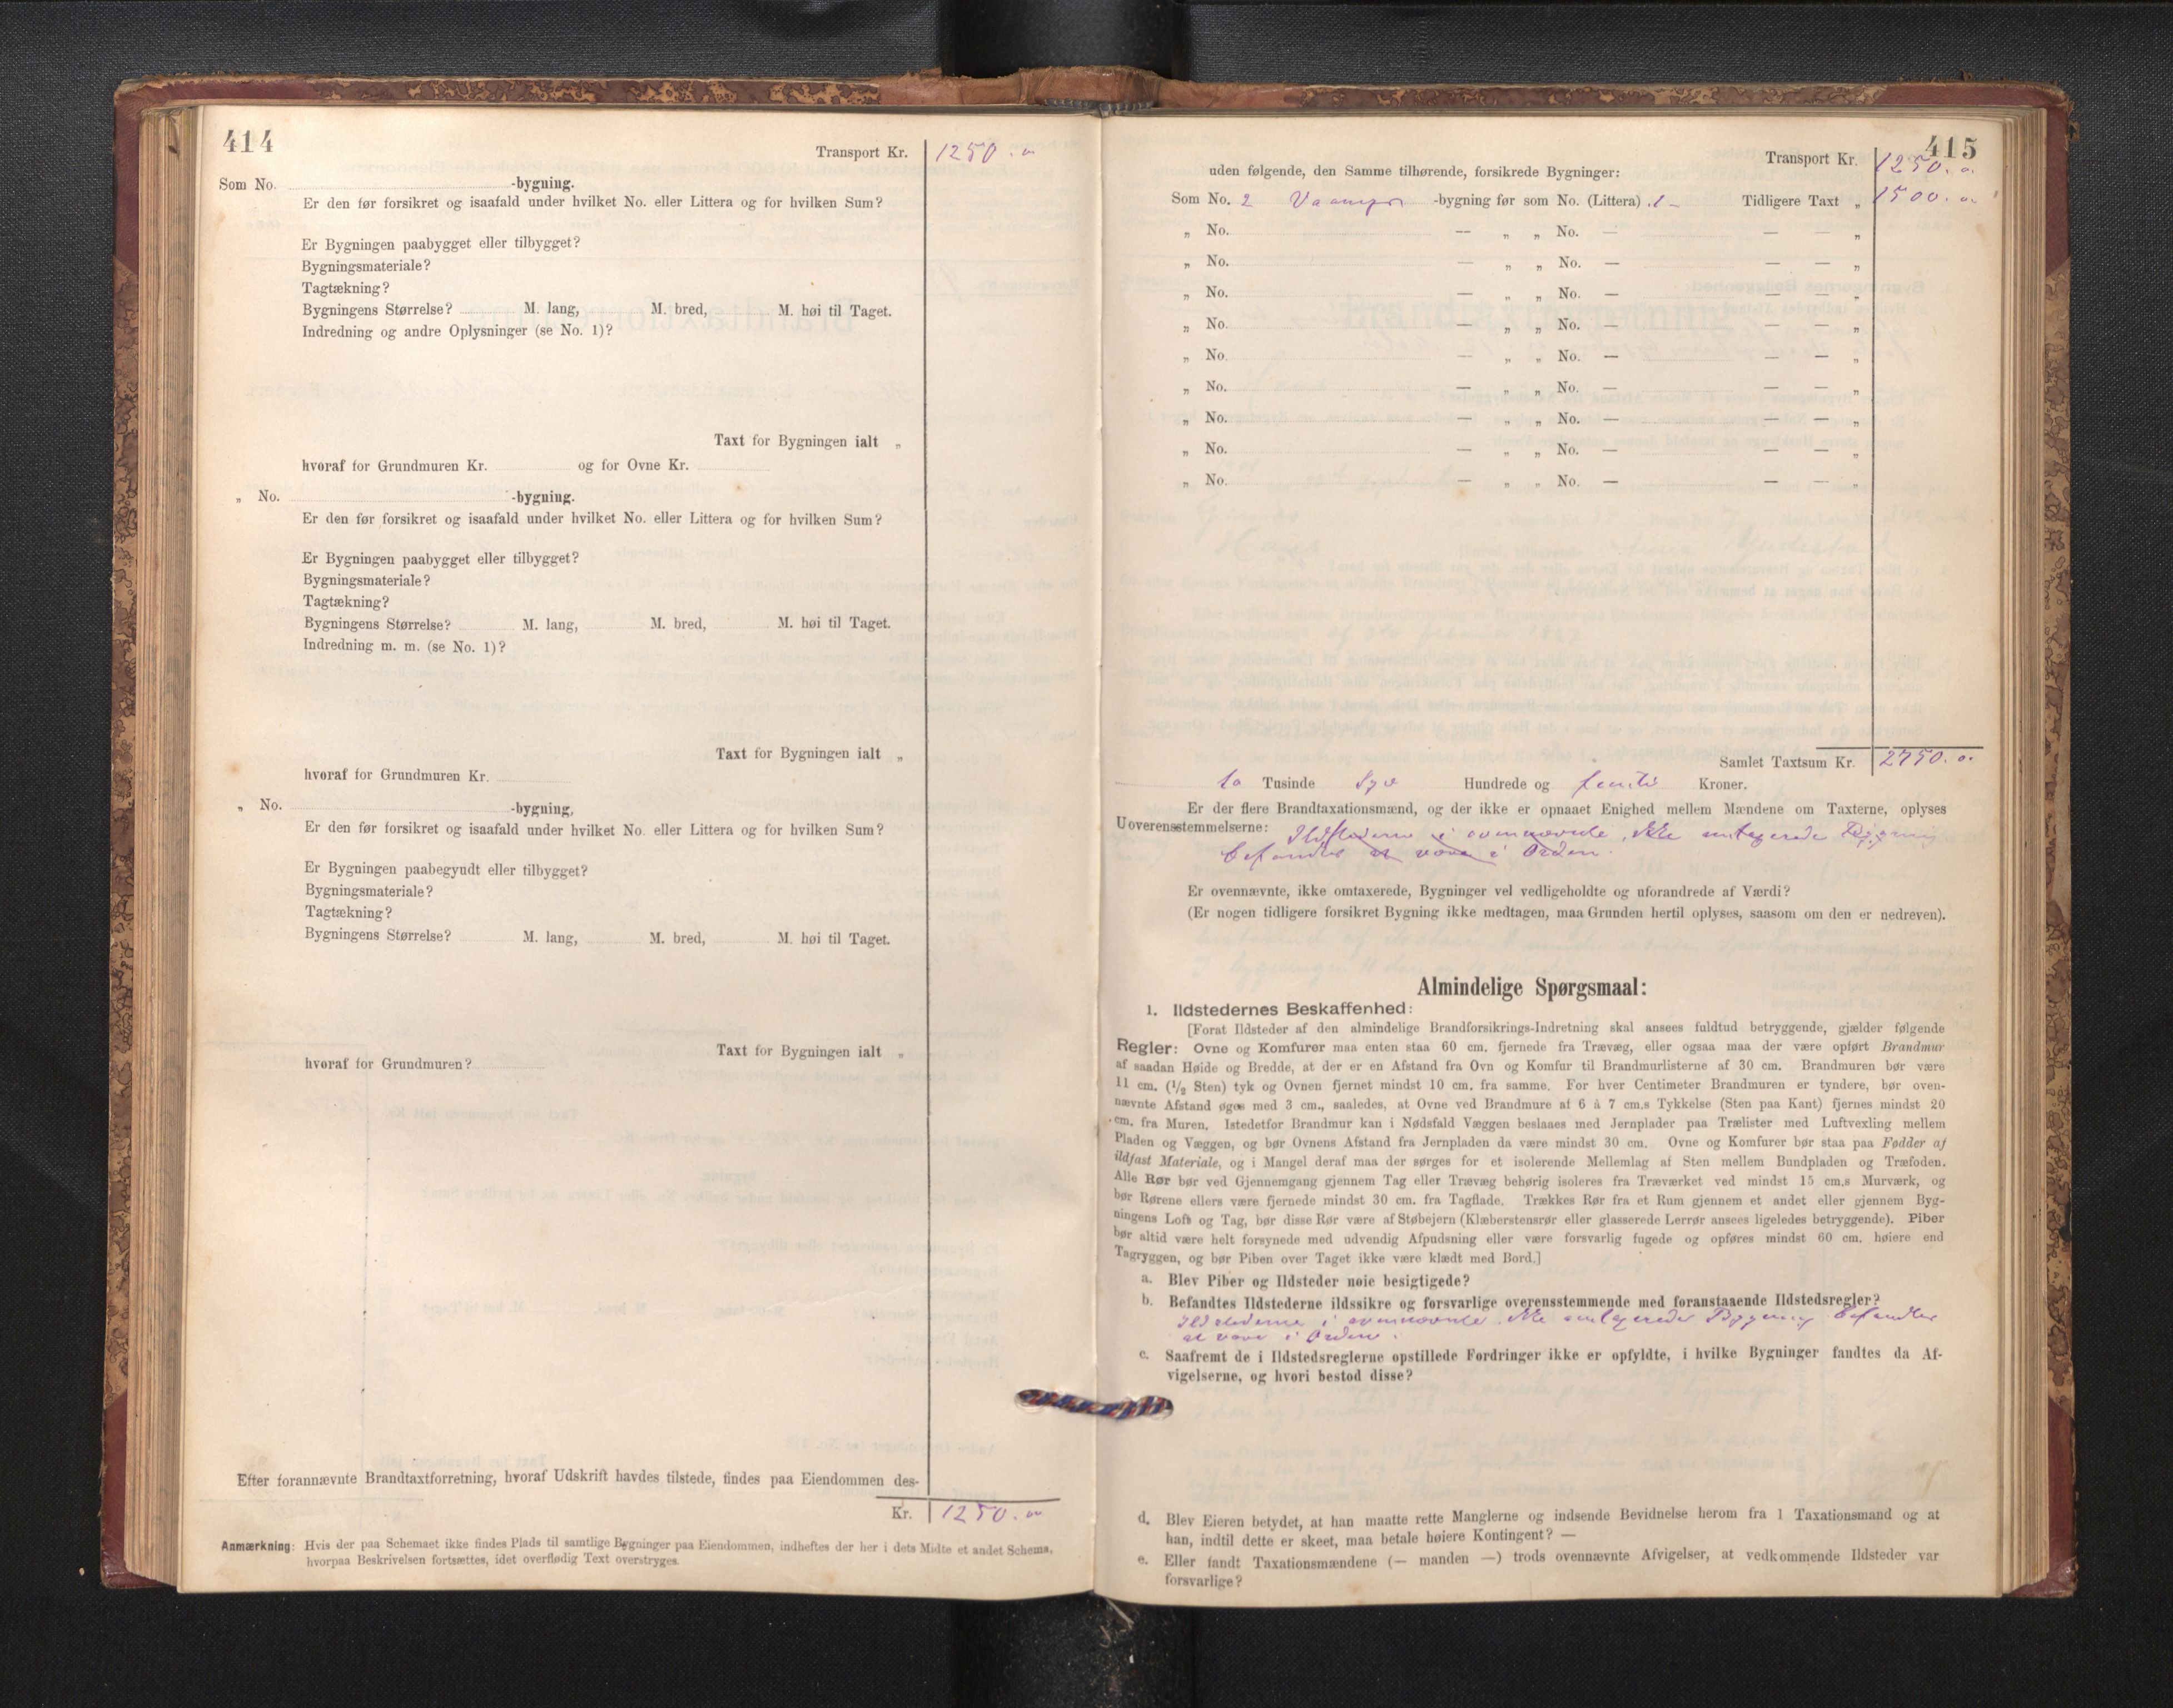 414
Transport Kr. 1250.
Som No. -bygning.
Er den før forsikret og isaafald under hvilket No. eller Littera og for hvilken Sum?
Er Bygningen paabygget eller tilbygget?
Bygningsmateriale?
Tagtækning?
Bygningens Størrelse? M. lang, M. bred, M. høi til Taget.
Indredning og andre Oplysninger (se No. 1)?
Taxt for Bygningen ialt „
hvoraf for Grundmuren Kr. og for Ovne Kr.
„ No. -bygning.
Er den før forsikret og isaafald under hvilket No. eller Littera og for hvilken Sum?
Er Bygningen paabygget eller tilbygget?
Bygningsmateriale?
Tagtækning?
Bygningens Størrelse? M. lang, M. bred, M. høi til Taget.
Indredning m. m. (se No. 1)?
Taxt for Bygningen ialt „
hvoraf for Grundmuren Kr.
„ No. -bygning,
Er den før forsikret og isaafald under hvilket No. eller Littera og for hvilken Sum?
Er Bygningen paabegyndt eller tilbygget?
Bygningsmateriale?
Tagtækning?
Bygningens Størrelse? M. lang, M. bred, M. høi til Taget.
Taxt for Bygningen ialt „
hvoraf for Grundmuren?
Efter forannævnte Brandtaxtforretning, hvoraf Udskrift havdes tilstede, findes paa Eiendommen des-
Kr. 1250.
Anmærkning: Hvis der paa Schemaet ikke findes Plads til samtlige Bygninger paa Eiendommen, indheftes der her i dets Midte et andet Schema,
hvorpaa Beskrivelsen fortsættes, idet overflødig Text overstryges.
415
Transport Kr. 1250.
uden følgende, den Samme tilhørende, forsikrede Bygninger:
Som No. 2 -bygning før som No. (Littera) 1 — Tidligere Taxt „ 1500.
„ No. — „ „ No. — — — „
„ No. — „ „ No. — — — „
„ No. — „ „ No. — — — „
„ No. — „ „ No. — — — „
„ No. — „ „ No. — — — „
„ No. — „ „ No. — — — „
„ No. — „ „ No. — — — „
„ No. — „ „ No. — — — „
„ No. — „ „ No. — — — „
Samlet Taxtsum Kr. 2750.
to Tusinde syv Hundrede og femti Kroner.
Er der flere Brandtaxationsmænd, og der ikke er opnaaet Enighed mellem Mændene om Taxterne, oplyses
Uoverensstemmelserne: Ildstederne i ovennævnte, ikke omtaxerede Bygning
befandtes at være i Orden.
Er ovennævnte, ikke omtaxerede, Bygninger vel vedligeholdte og uforandrede af Værdi?
(Er nogen tidligere forsikret Bygning ikke medtagen, maa Grunden hertil oplyses, saasom om den er nedreven).
Almindelige Spørgsmaal:
1. Ildstedernes Beskaffenhed:
[Forat Ildsteder af den almindelige Brandforsikrings-Indretning skal ansees fuldtud betryggende, gjælder følgende
Regler: Ovne og Komfurer maa enten staa 60 cm. fjernede fra Trævæg, eller ogsaa maa der være opført Brandmur
af saadan Høide og Bredde, at der er en Afstand fra Ovn og Komfur til Brandmurlisterne af 30 cm. Brandmuren bør være
11 cm. (1/2 Sten) tyk og Ovnen fjernet mindst 10 cm. fra samme. For hver Centimeter Brandmuren er tyndere, bør oven-
nævnte Afstand øges med 3 cm., saaledes, at Ovne ved Brandmure af 6 à 7 cm.s Tykkelse (Sten paa Kant) fjernes mindst 20
cm. fra Muren. Istedetfor Brandmur kan i Nødsfald Væggen beslaaes med Jernplader paa Trælister med Luftvexling mellem
Pladen og Væggen, og bør Ovnens Afstand fra Jernpladen da være mindst 30 cm. Ovne og Komfurer bør staa paa Fødder af
ildfast Materiale, og i Mangel deraf maa der sørges for et isolerende Mellemlag af Sten mellem Bundpladen og Træfoden.
Alle Rør bør ved Gjennemgang gjennem Tag eller Trævæg behørig isoleres fra Træværket ved mindst 15 cm.s Murværk, og
bør Rørene ellers være fjernede mindst 30 cm. fra Tagflade. Trækkes Rør fra et Rum gjennem et andet eller gjennem Byg-
ningens Loft og Tag, bør disse Rør være af Støbejern (Klæberstensrør eller glasserede Lerrør ansees ligeledes betryggende). Piber
bør altid være helt forsynede med udvendig Afpudsning eller være forsvarlig fugede og opføres mindst 60 cm. høiere end
Tagryggen, og bør Piben over Taget ikke være klædt med Bord.]
a. Blev Piber og Ildsteder nøie besigtigede?
b. Befandtes Ildstederne ildssikre og forsvarlige overensstemmende med foranstaaende Ildstedsregler?
Ildstederne i ovennævnte, ikke omtaxerede Bygning befandtes
at være i Orden.
c. Saafremt de i Ildstedsreglerne opstillede Fordringer ikke er opfyldte, i hvilke Bygninger fandtes da Af-
vigelserne, og hvori bestod disse?
d. Blev Eieren betydet, at han maatte rette Manglerne og indsende Bevidnelse herom fra 1 Taxationsmand og at
han, indtil dette er skeet, maa betale høiere Kontingent? —
e. Eller fandt Taxationsmændene (— manden —) trods ovennævnte Afvigelser, at vedkommende Ildsteder var
forsvarlige?